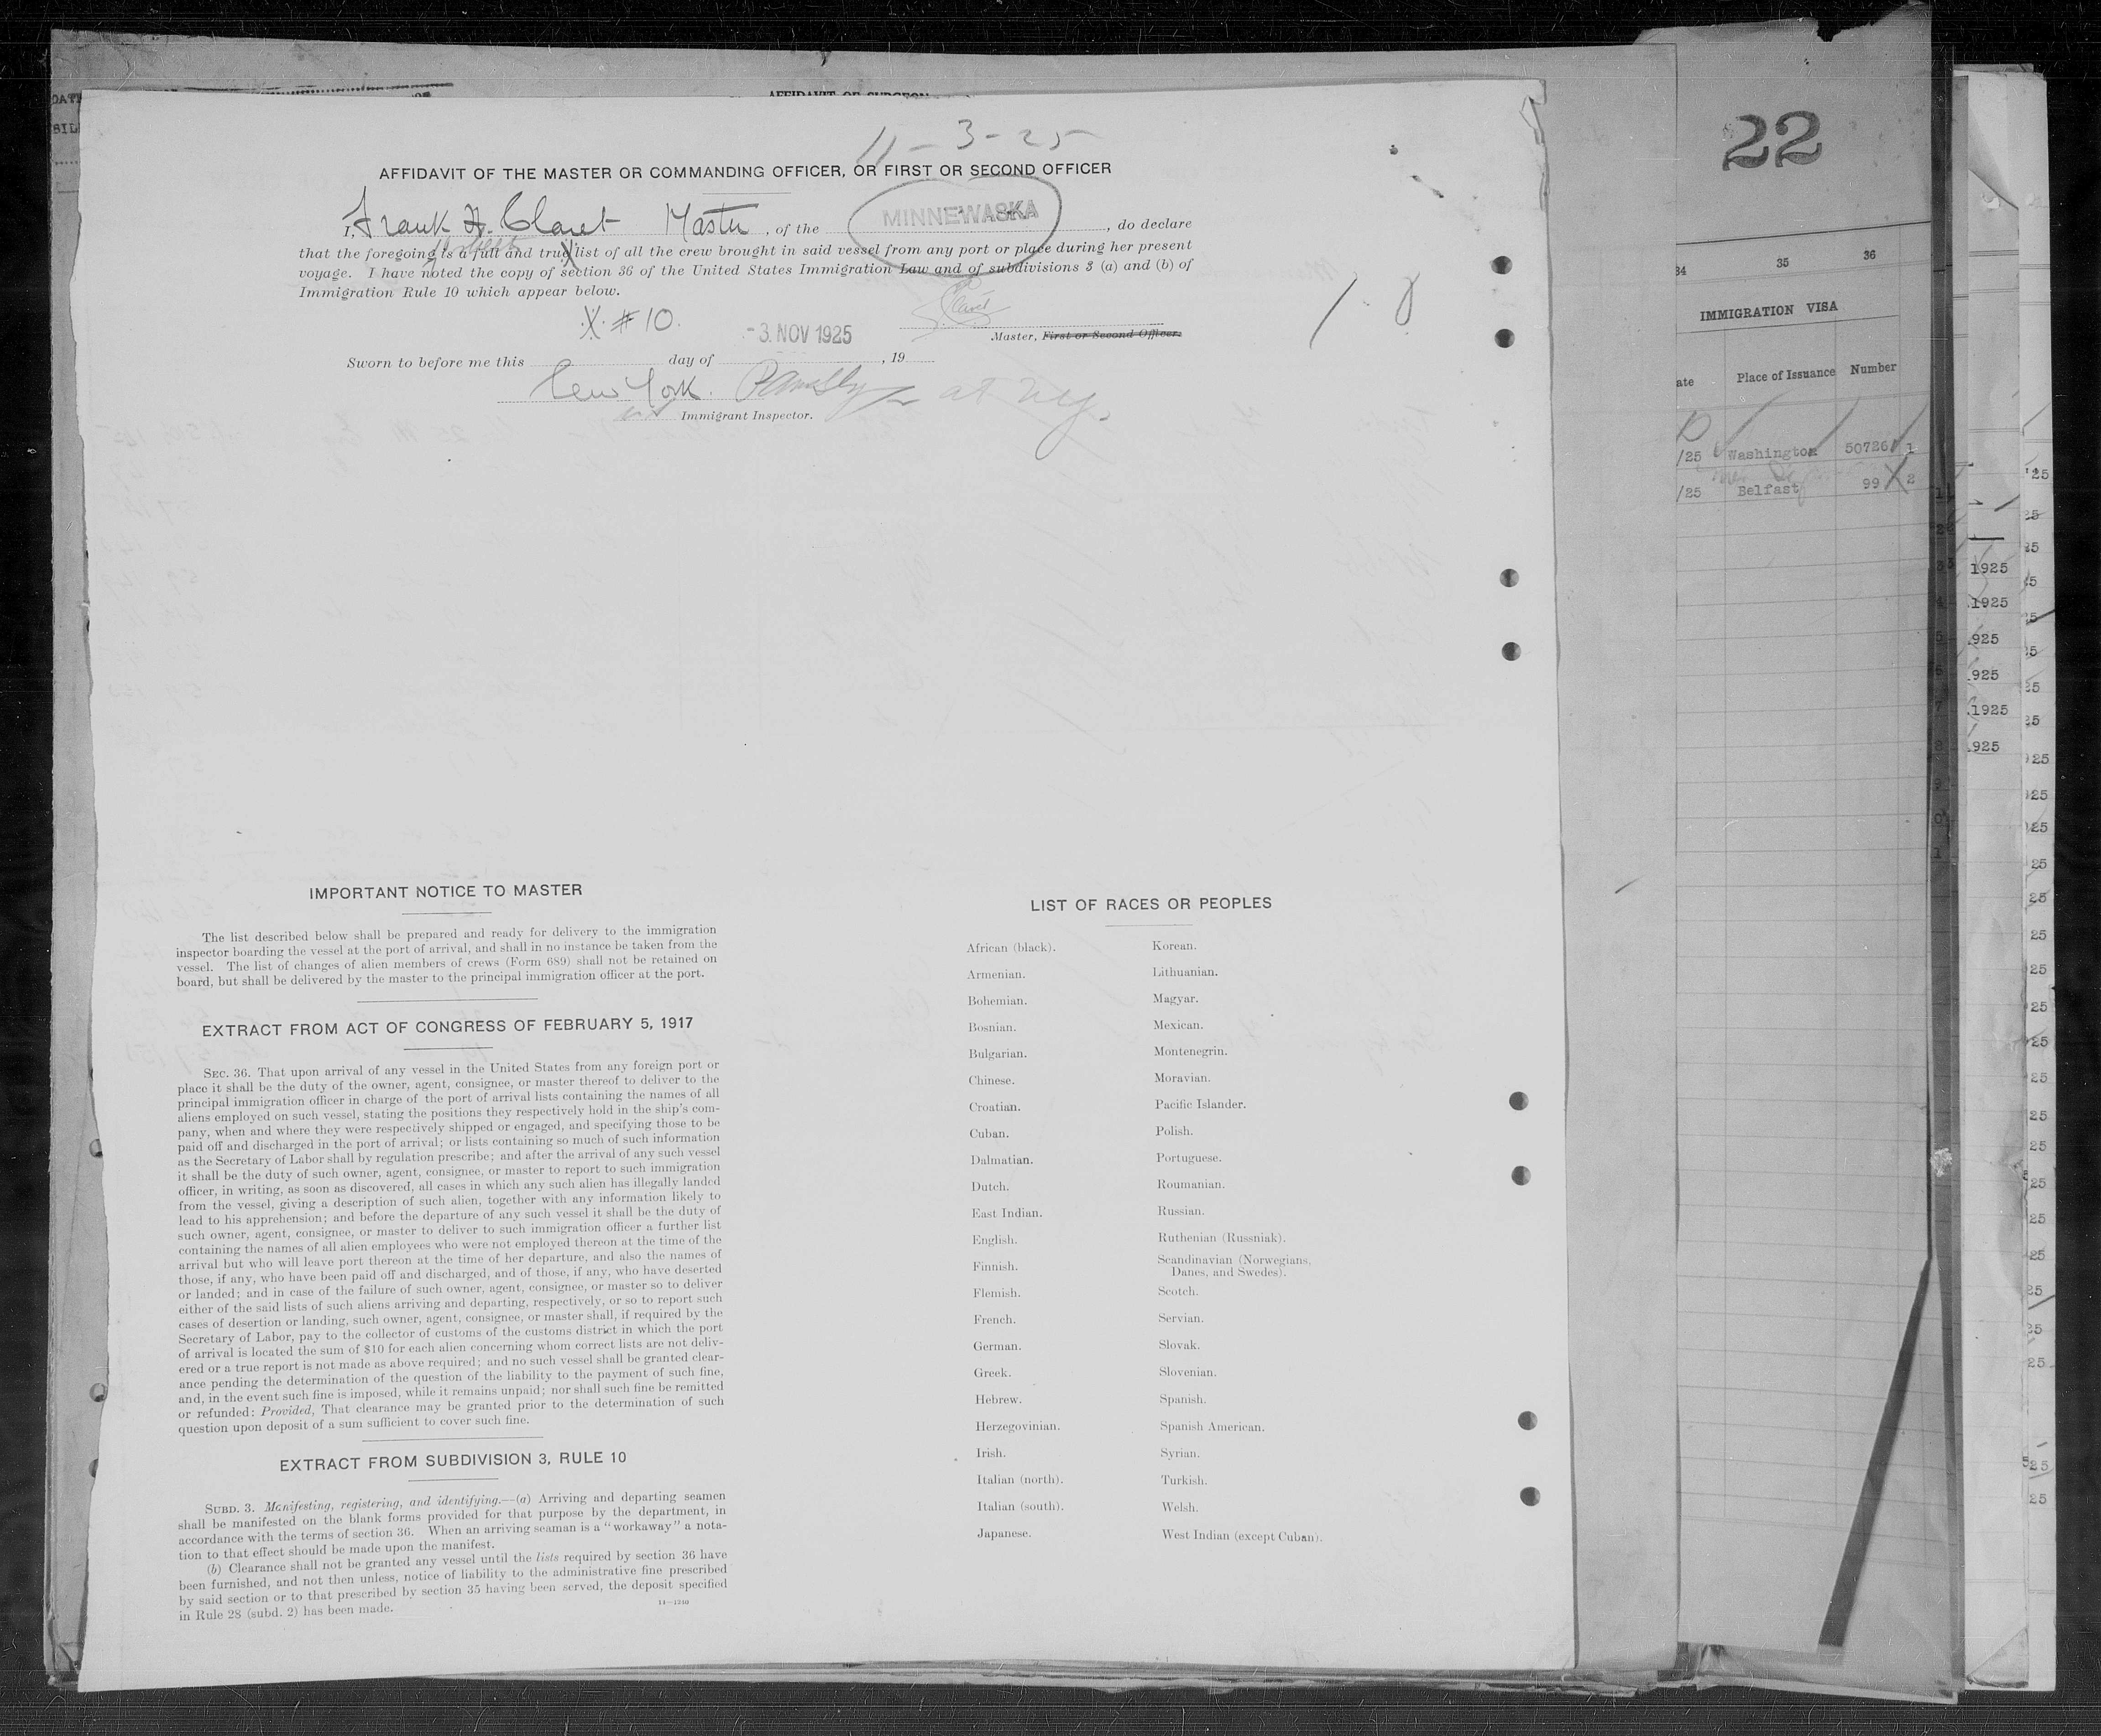 AFFIDAVIT OF SURGEON
11-3-25
AFFIDAVIT OF THE MASTER OR COMMANDING OFFICER, OR FIRST OR SECOND OFFICER
I, Frank H. Claret Master, of the MINNEWASKA, do declare
that the foregoing is a full and true list of all the crew brought in said vessel from any port or place during her present
voyage. I have noted the copy of section 36 of the United States Immigration Law and of subdivisions 3 (a) and (b) of
Immigration Rule 10 which appear below.
X #10.
-3 NOV 1925
Master, First or Second Officer.
Sworn to before me this day of , 19
New York.
Immigrant Inspector.
IMPORTANT NOTICE TO MASTER
The list described below shall be prepared and ready for delivery to the immigration
inspector boarding the vessel at the port of arrival, and shall in no instance be taken from the
vessel. The list of changes of alien members of crews (Form 689) shall not be retained on
board, but shall be delivered by the master to the principal immigration officer at the port.
EXTRACT FROM ACT OF CONGRESS OF FEBRUARY 5, 1917
SEC. 36. That upon arrival of any vessel in the United States from any foreign port or
place it shall be the duty of the owner, agent, consignee, or master thereof to deliver to the
principal immigration officer in charge of the port of arrival lists containing the names of all
aliens employed on such vessel, stating the positions they respectively hold in the ship's com-
pany, when and where they were respectively shipped or engaged, and specifying those to be
paid off and discharged in the port of arrival; or lists containing so much of such information
as the Secretary of Labor shall by regulation prescribe; and after the arrival of any such vessel
it shall be the duty of such owner, agent, consignee, or master to report to such immigration
officer, in writing, as soon as discovered, all cases in which any such alien has illegally landed
from the vessel, giving a description of such alien, together with any information likely to
lead to his apprehension; and before the departure of any such vessel it shall be the duty of
such owner, agent, consignee, or master to deliver to such immigration officer a further list
containing the names of all alien employees who were not employed thereon at the time of the
arrival but who will leave port thereon at the time of her departure, and also the names of
those, if any, who have been paid off and discharged, and of those, if any, who have deserted
or landed; and in case of the failure of such owner, agent, consignee, or master so to deliver
either of the said lists of such aliens arriving and departing, respectively, or so to report such
cases of desertion or landing, such owner, agent, consignee, or master shall, if required by the
Secretary of Labor, pay to the collector of customs of the customs district in which the port
of arrival is located the sum of $10 for each alien concerning whom correct lists are not deliv-
ered or a true report is not made as above required; and no such vessel shall be granted clear-
ance pending the determination of the question of the liability to the payment of such fine,
and, in the event such fine is imposed, while it remains unpaid; nor shall such fine be remitted
or refunded: Provided, That clearance may be granted prior to the determination of such
question upon deposit of a sum sufficient to cover such fine.
EXTRACT FROM SUBDIVISION 3, RULE 10
SUBD. 3. Manifesting, registering, and identifying.—(a) Arriving and departing seamen
shall be manifested on the blank forms provided for that purpose by the department, in
accordance with the terms of section 36. When an arriving seaman is a "workaway" a nota-
tion to that effect should be made upon the manifest.
(b) Clearance shall not be granted any vessel until the lists required by section 36 have
been furnished, and not then unless, notice of liability to the administrative fine prescribed
by said section or to that prescribed by section 35 having been served, the deposit specified
in Rule 28 (subd. 2) has been made.
14—1240
LIST OF RACES OR PEOPLES
African (black).
Armenian.
Bohemian.
Bosnian.
Bulgarian.
Chinese.
Croatian.
Cuban.
Dalmatian.
Dutch.
East Indian.
English.
Finnish.
Flemish.
French.
German.
Greek.
Hebrew.
Herzegovinian.
Irish.
Italian (north).
Italian (south).
Japanese.
Korean.
Lithuanian.
Magyar.
Mexican.
Montenegrin.
Moravian.
Pacific Islander.
Polish.
Portuguese.
Roumanian.
Russian.
Ruthenian (Russniak).
Scandinavian (Norwegians,
Danes, and Swedes).
Scotch.
Servian.
Slovak.
Slovenian.
Spanish.
Spanish American.
Syrian.
Turkish.
Welsh.
West Indian (except Cuban).
22
34 35 36
IMMIGRATION VISA
ate Place of Issuance Number
/25 Washington 50726 1
/25 Belfast 99 2
1925
1925
925
925
1925
925